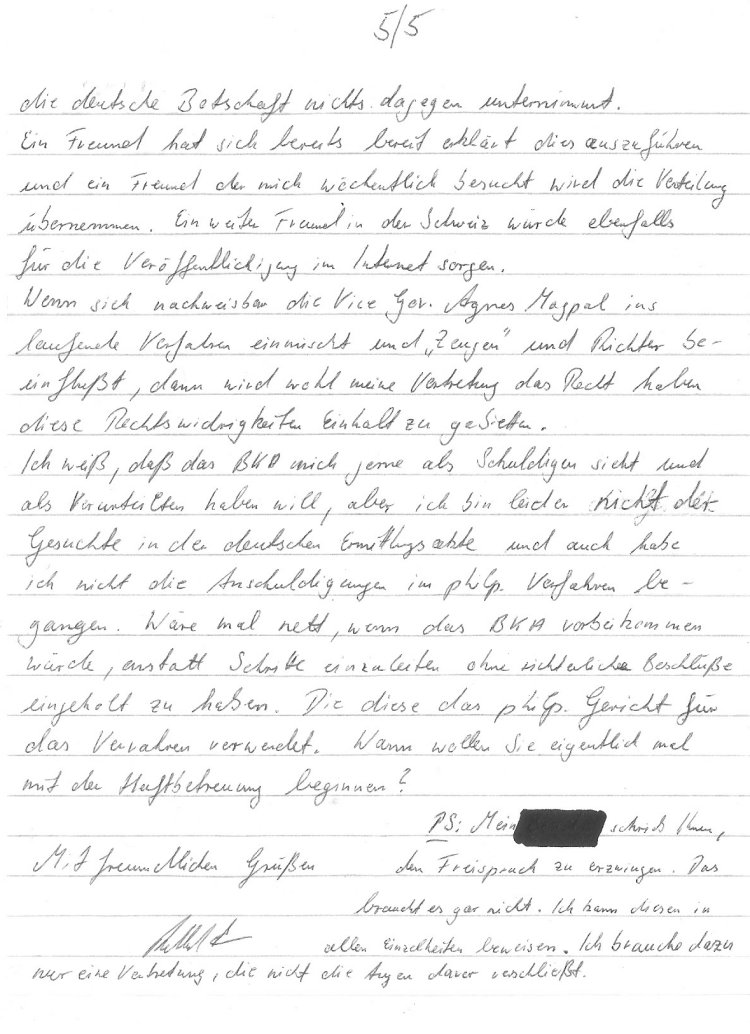 5/5
die deutsche Botschaft nichts dagegen unternimmt.
Ein Freund hat sich bereits bereit erklärt dies auszuführen
und ein Freund der mich wöchentlich besucht wird die Verteilung
übernemmen. Ein weiter Freund in der Schweiz würde ebenfalls
für die Veröffentlichigung im Internet sorgen.
Wenn sich nachweisbar die Vice Gov. Agnes Magpal ins
laufende Verfahren einmischt und „Zeugen" und Richter be-
einflußt, dann wird wohl meine Vertretung das Recht haben
diese Rechtswidrigkeiten Einhalt zu gebieten.
Ich weiß, daß das BKA mich gerne als Schuldigen sieht und
als Verurteilten haben will, aber ich bin leider nicht der
Gesuchte in der deutschen Ermittlungsakte und auch habe
ich nicht die Anschuldigungen im philp. Verfahren be-
gangen. Wäre mal nett, wenn das BKA vorbeikommen
würde, anstatt Schritte einzuleiten ohne richterliche Beschlüße
eingeholt zu haben. Die diese das philp. Gericht für
das Verfahren verwendet. Wann wollen Sie eigentlich mal
mit der Haftbetreuung beginnen?
PS: Mein schrieb Ihnen,
Mit freundlichen Grüßen den Freispruch zu erzwingen. Das
braucht es gar nicht. Ich kann diesen in
allen Einzelheiten beweisen. Ich brauche dazu
nur eine Vertretung, die nicht die Augen davor verschließt.